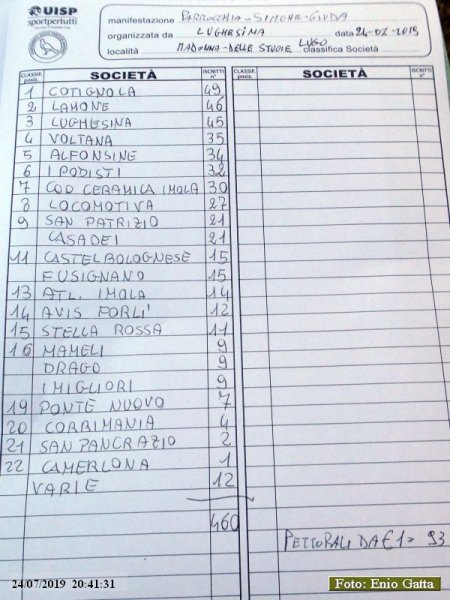 UISP
sportpertutti
manifestazione PARROCCHIA - SIMONE - GIUDA
organizzata da LUGHESINA data 24-07-2019
località MADONNA - DELLE STUOIE LUGO classifica Società
CLASSIF. posiz. SOCIETÀ ISCRITTI n° CLASSIF. posiz. SOCIETÀ ISCRITTI n°
1 COTIGNOLA 49
2 LAMONE 46
3 LUGHESINA 45
4 VOLTANA 35
5 ALFONSINE 34
6 I PODISTI 32
7 COO CERAMICA IMOLA 30
8 LOCOMOTIVA 27
9 SAN PATRIZIO 21
CASADEI 21
11 CASTELBOLOGNESE 15
FUSIGNANO 15
13 ATL. IMOLA 14
14 AVIS FORLI' 12
15 STELLA ROSSA 11
16 MAMELI 9
DRAGO 9
I MIGLIORI 9
19 PONTE NUOVO 7
20 CORRIMANIA 4
21 SAN PANCRAZIO 2
22 CAMERLONA 1
VARIE 12
460
PETTORALI DA €1 = 93
24/07/2019 20:41:31
Foto: Enio Gatta